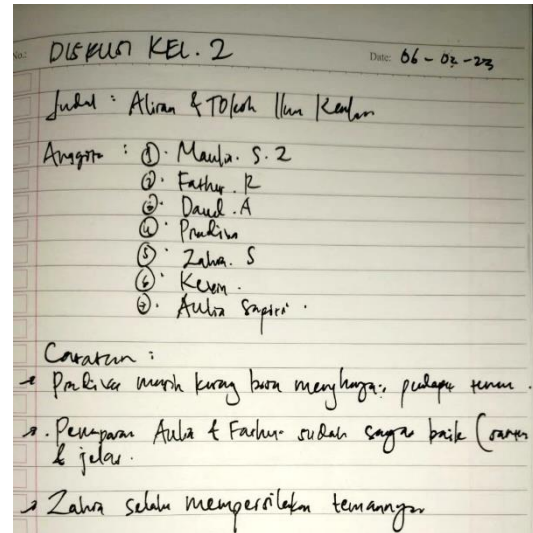 No: DISKUSI KEL. 2 Date: 06 - 02 - 23
Judul : Aliran & Tokoh Ilmu Kalam
Anggota : ①. Maulia. S. Z
②. Fathur. R
③. Daud. A
④. Pradiva
⑤. Zahra. S
⑥. Keven.
⑦. Aulia Sapitri.
Catatan :
Pradiva masih kurang bisa menghargai pendapat teman.
Pemaparan Aulia & Fathur sudah sangat baik (
& jelas.
Zahra selalu mempersilakan temannya